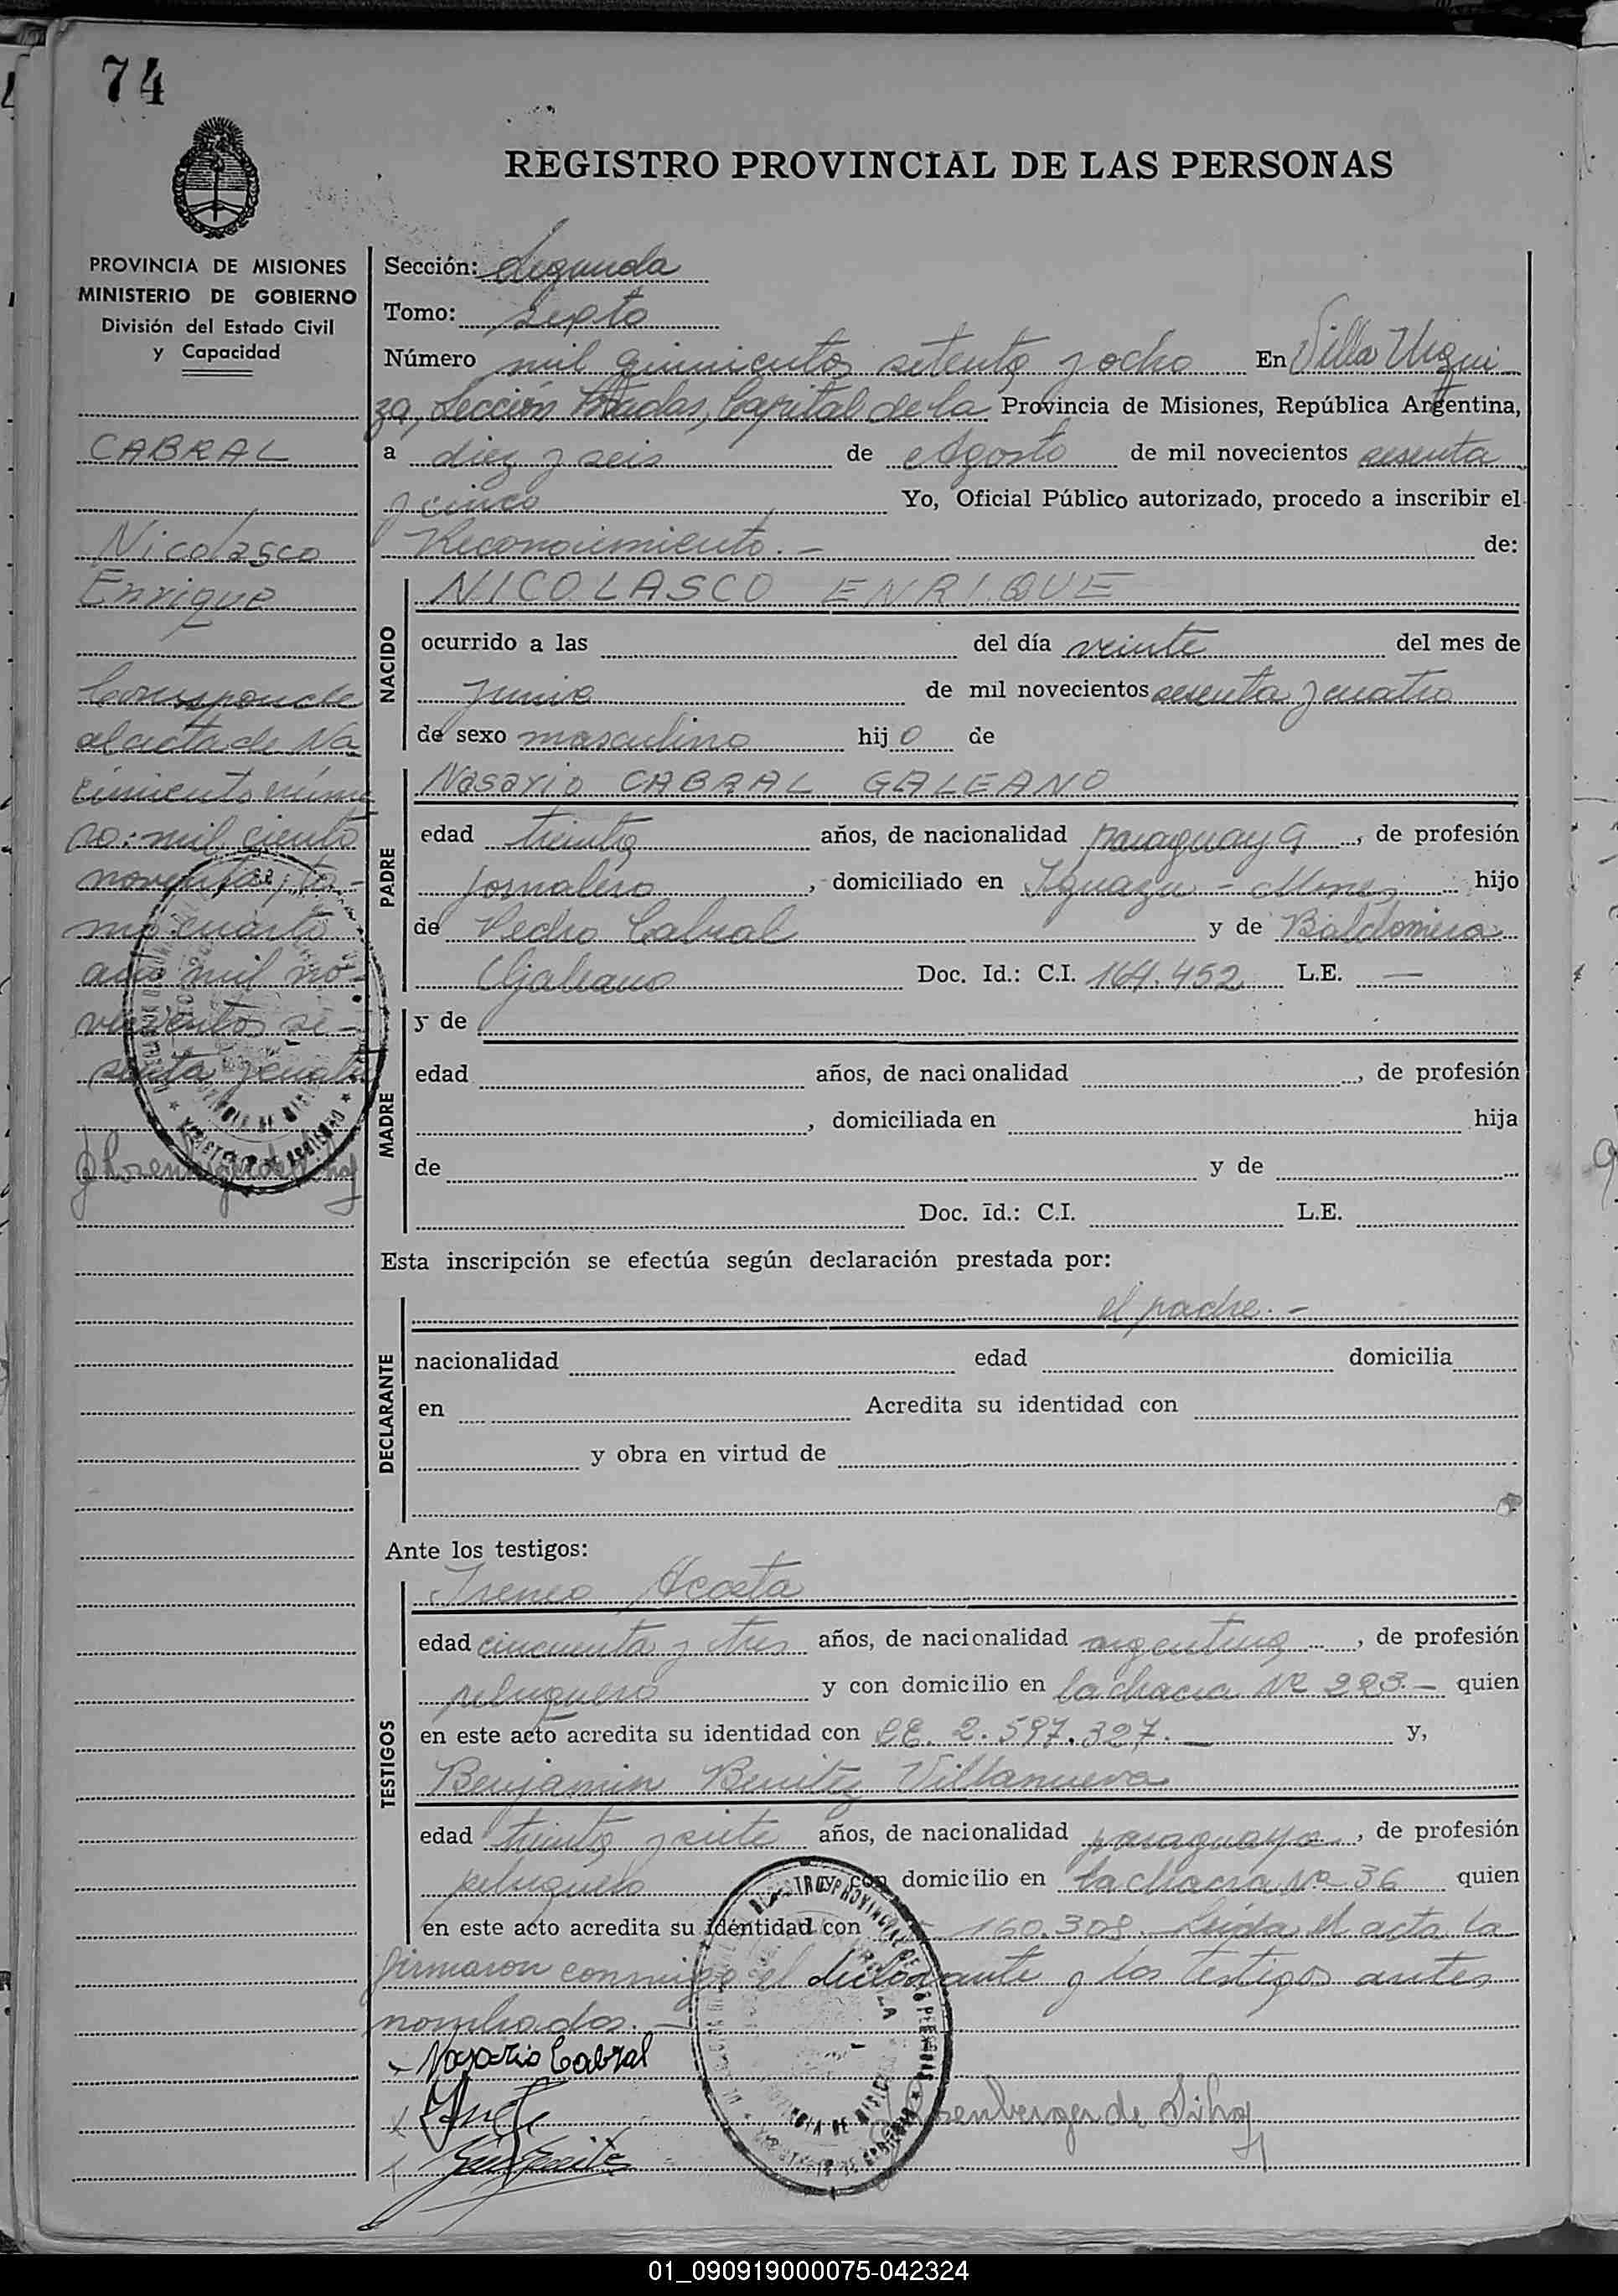 74
REGISTRO PROVINCIAL DE LAS PERSONAS
PROVINCIA DE MISIONES
MINISTERIO DE GOBIERNO
División del Estado Civil
y Capacidad
CABRAL
Nicolasco
Enrique
Corresponde
al acta de Na
cimiento núme
ro: mil ciento
noventa, to-
mo cuarto
año mil no-
vecientos se-
senta y cuatro
Sección: Segunda
Tomo: sexto
Número mil quinientos setenta y ocho En Villa Urqui
za, Sección Posadas, Capital de la Provincia de Misiones, República Argentina,
a diez y seis de Agosto de mil novecientos sesenta
y cinco Yo, Oficial Público autorizado, procedo a inscribir el
Reconocimiento.- de:
NACIDO
NICOLASCO ENRIQUE
ocurrido a las del día veinte del mes de
junio de mil novecientos sesenta y cuatro
de sexo masculino hijo de
PADRE
Nasario CABRAL GALEANO
edad treinta años, de nacionalidad paraguaya, de profesión
jornalero, domiciliado en Iguazu - Mnes, hijo
de Pedro Cabral y de Baldomera
Galeano Doc. Id.: C.I. 164.452 L.E. —
MADRE
y de
edad años, de nacionalidad , de profesión
, domiciliada en hija
de y de
Doc. Id.: C.I. L.E.
Esta inscripción se efectúa según declaración prestada por:
DECLARANTE
el padre.-
nacionalidad edad domicilia
en Acredita su identidad con
y obra en virtud de
Ante los testigos:
TESTIGOS
Ireneo Acosta
edad cincuenta y tres años, de nacionalidad argentina, de profesión
peluquero y con domicilio en la chacra Nº 223.- quien
en este acto acredita su identidad con LE. 2.597.327.— y,
Benjamin Benitez Villanueva
edad treinta y siete años, de nacionalidad paraguaya, de profesión
peluquero y con domicilio en la chacra Nº 36 quien
en este acto acredita su identidad con 160.308. Leida el acta la
firmaron conmigo el declarante y los testigos antes
nombrados.—
Nasario Cabral
01_090919000075-042324